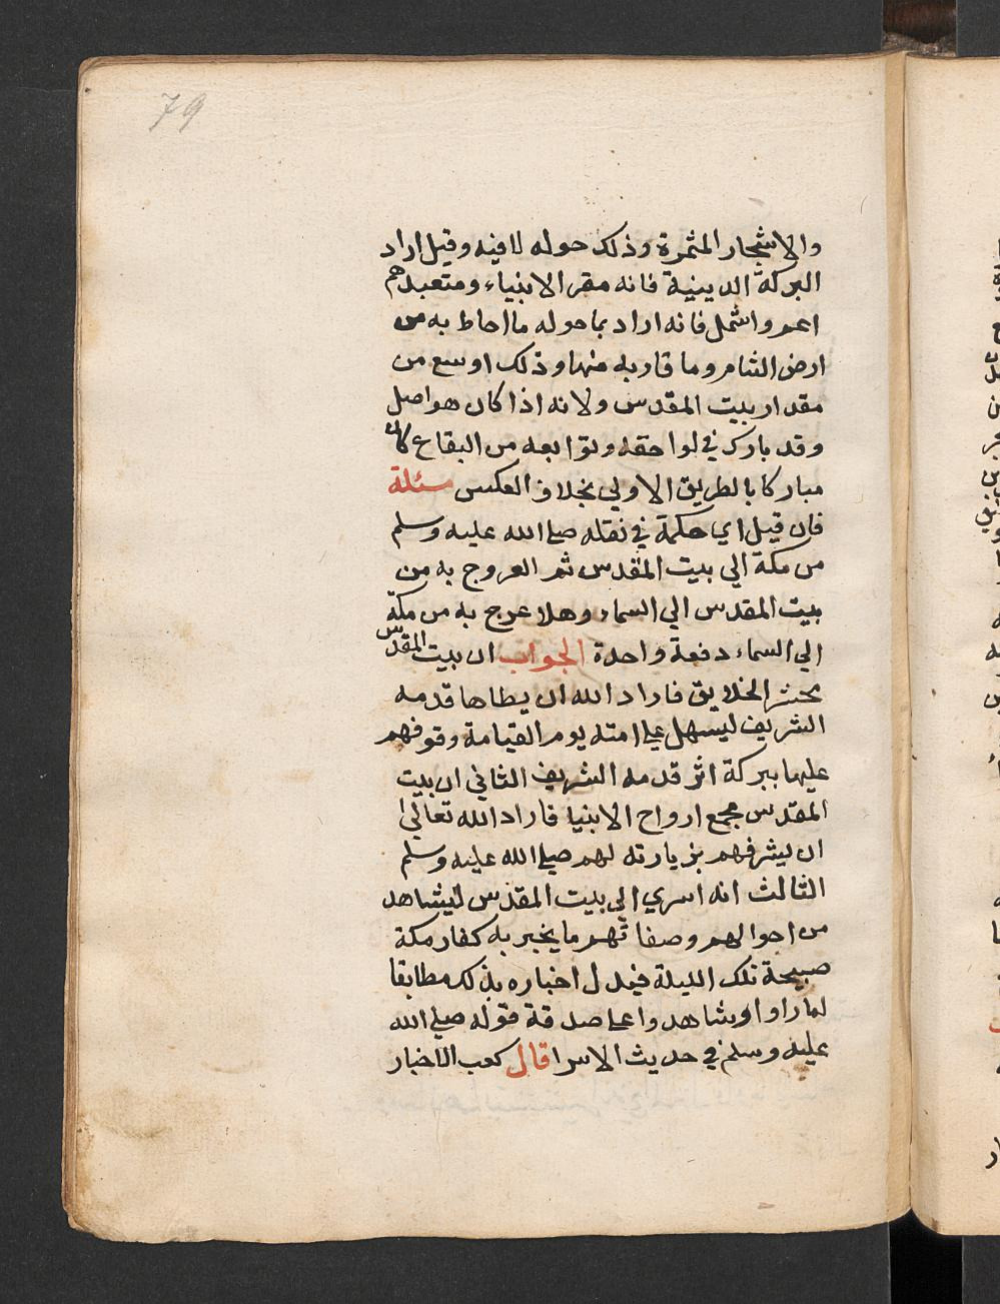 79
والاشجار المثمرة وذلك حوله لا فيه وقيل اراد
البركة الدينية فانه مقر الانبياء ومتعبدهم
اعم واشمل فانه اراد بما حوله ما احاط به من
ارض الشام وما قاربه منها وذلك اوسع من
مقدار بيت المقدس ولانه اذا كان هو اصل
وقد بارك في لواحقه وتوابعه من البقاع كان
مباركا بالطريق الاولي بخلاف العكس مسئلة
فان قيل اي حكمة في نقله صلي الله عليه وسلم
من مكة الي بيت المقدس ثم العروج به من
بيت المقدس الي السماء وهلا عرج به من مكة
الي السماء دفعة واحدة الجواب ان بيت المقدس
محشر الخلايق فاراد الله ان يطاها قدمه
الشريف ليسهل علي امته يوم القيامة وقوفهم
عليها ببركة اثر قدمه الشريف الثاني ان بيت
المقدس مجمع ارواح الانبيا فاراد الله تعالي
ان يشرفهم بزيارته لهم صلي الله عليه وسلم
الثالث انه اسري الي بيت المقدس ليشاهد
من احوالهم وصفاتهم ما يخبر به كفار مكة
صبيحة تلك الليلة فيدل اخباره بذلك مطابقا
لما راوا وشاهدوا علي صدقة قوله صلي الله
عليه وسلم في حديث الاسرا قال كعب الاحبار